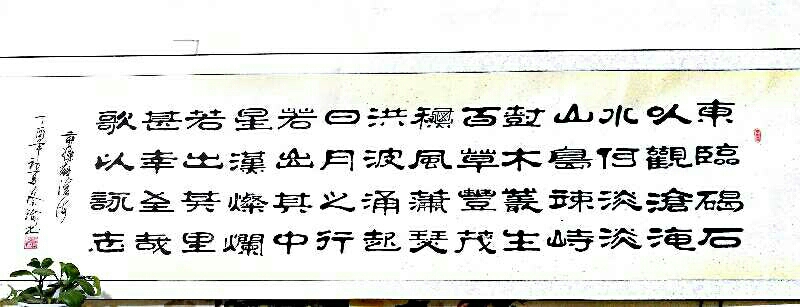 東臨碣石
以觀滄海
水何淡淡
山島竦峙
樹木叢生
百草豐茂
龝風蕭瑟
洪波涌起
日月之行
若出其中
星漢燦爛
若出其里
甚幸至哉
歌以詠志
曹操觀滄海
丁酉年